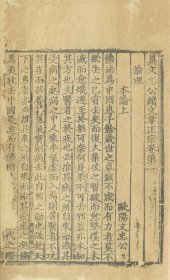 真文忠公續文章正宗卷第
論理
本論上
歐陽文忠公
佛法為中國患千餘歲世之卓然不惑而有力者莫不
欲去之已嘗去矣而復大集攻之暫破而愈堅撲之未
滅而愈熾遂至於無可奈何是果不可去邪蓋亦未知
其方也夫醫者之於疾也必推其病之所自來而治其
受病之處病之中人乘乎氣虛而入焉則善醫者不攻
其疾而務養其氣氣實則病去此自然之效也故救天
下之患者亦必推其患之所自來而治其受患之處佛
為夷狄去中國最遠而有佛固 代之際